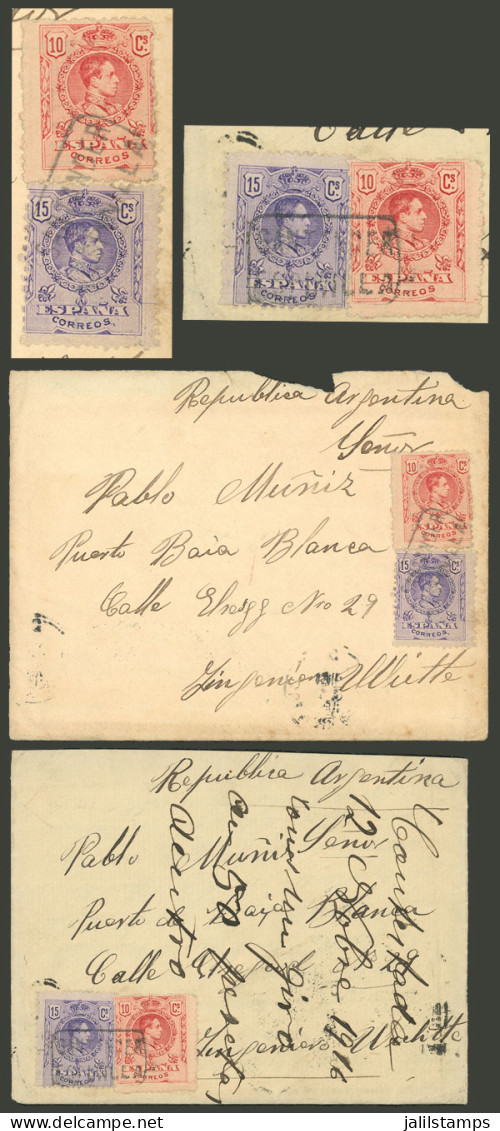 10 Cs
ESPAÑA
CORREOS
15 Cs
ESPAÑA
CORREOS.
Calle
15 Cs
ESPAÑA
CORREOS.
10 Cs
ESPAÑA
CORREOS
Republica Argentina
Señor
Pablo Muñiz
Puerto Baia Blanca
Calle Nro 29
10 Cs
ESPAÑA
CORREOS
15 Cs
ESPAÑA
CORREOS.
Republica Argentina
Señor
Pablo Muñiz
Puerto de Baia Blanca
Calle
Contestada
12 1916
con un giro
de 50
dentro
15 Cs
ESPAÑA
CORREOS.
10 Cs
ESPAÑA
CORREOS
www.jalilstamps.com